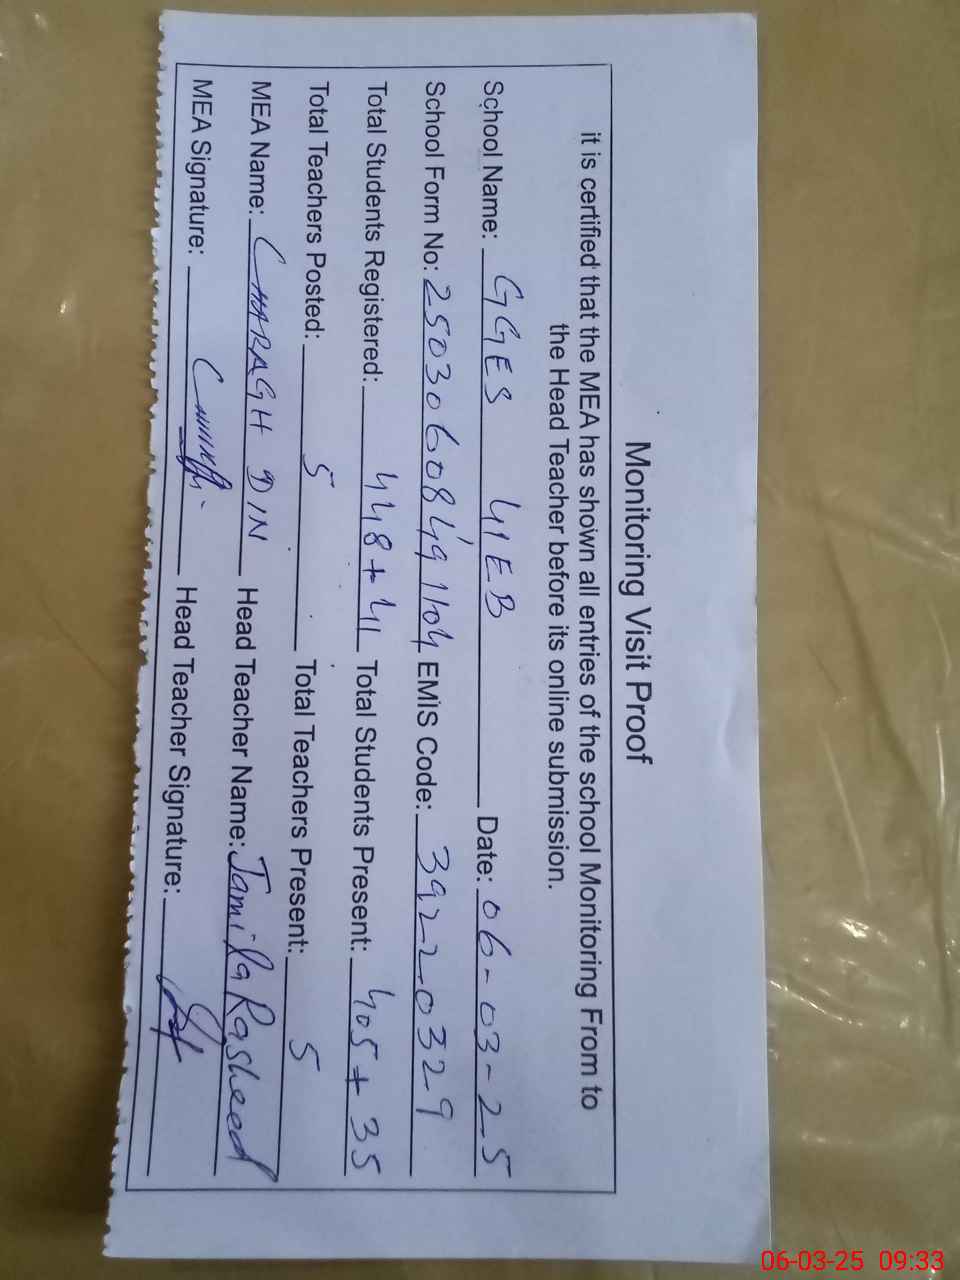 Monitoring Visit Proof
it is certified that the MEA has shown all entries of the school Monitoring From to
the Head Teacher before its online submission.
School Name: GGES 41EB Date: 06-03-25
School Form No: 250306084491104 EMIS Code: 39220329
Total Students Registered: 448+41 Total Students Present: 405+35
Total Teachers Posted: 5 Total Teachers Present: 5
MEA Name: CHARAGH DIN Head Teacher Name: Jamila Rasheed
MEA Signature: Head Teacher Signature:
06-03-25 09:33